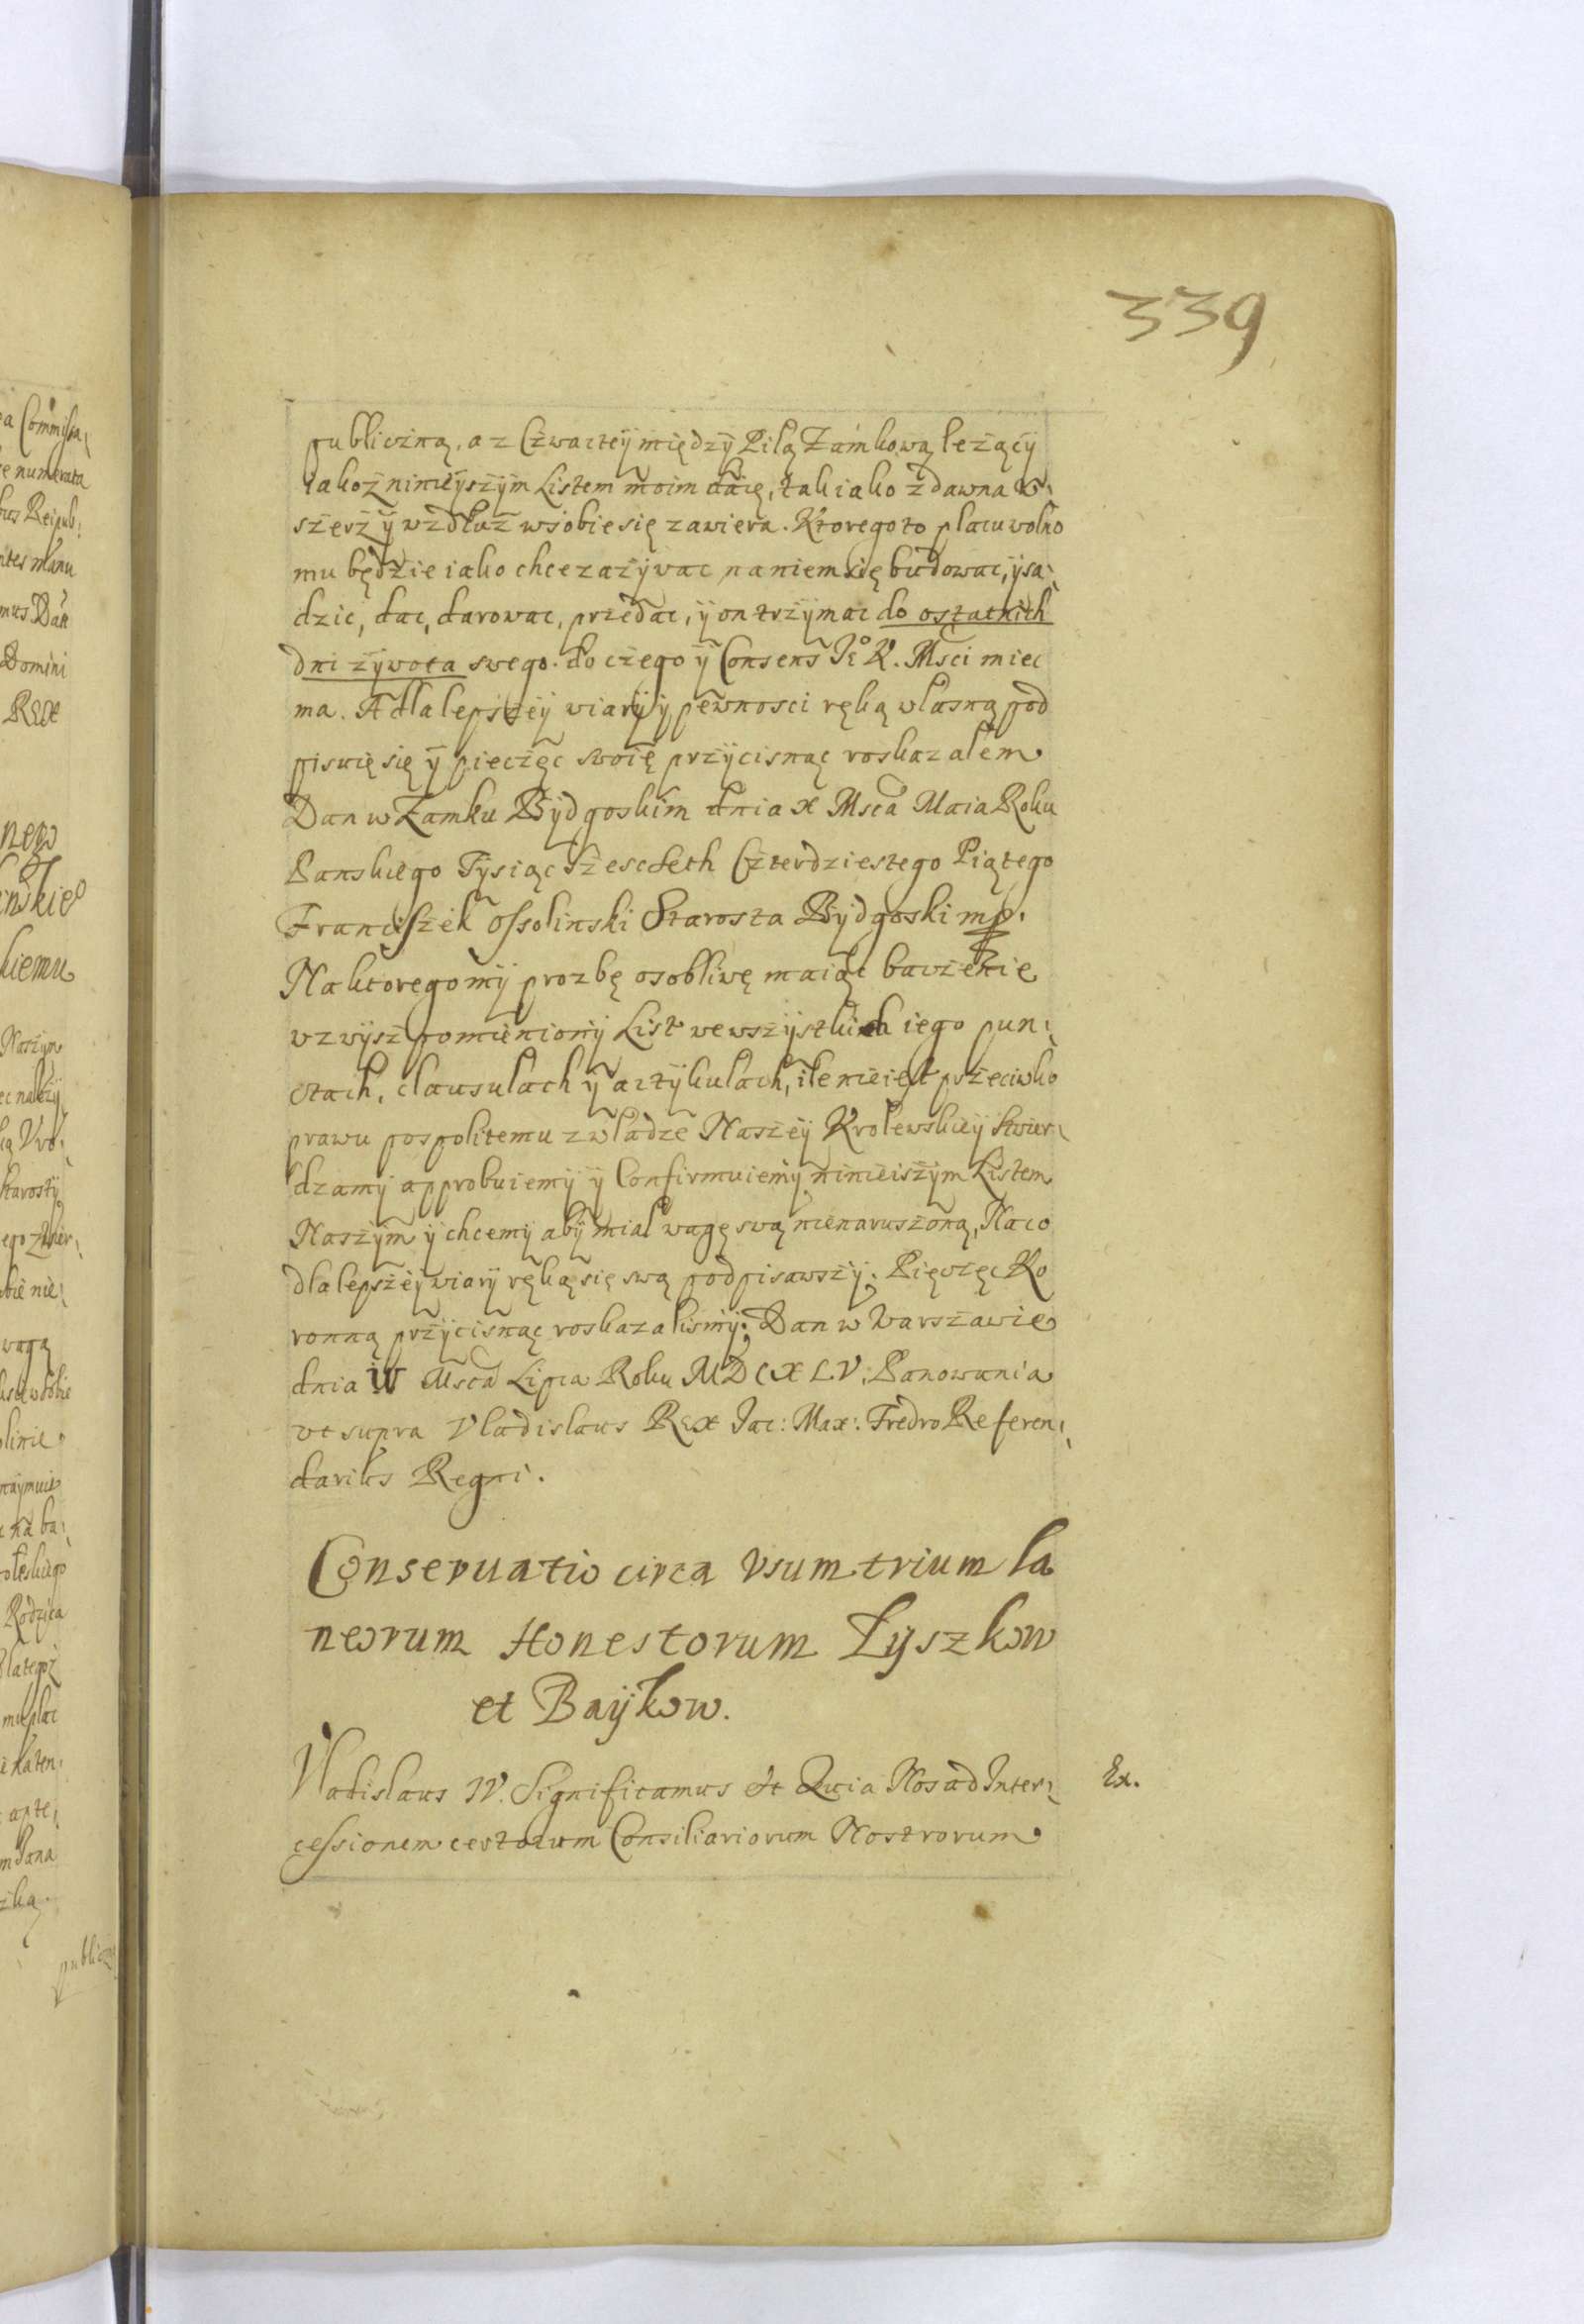 339
publiczną, a z Czwartey między Piłą Zamkową leżący
iakoż ninieyszym Listem moim daię, tak iako zdawna w
szerz y wzdłuż wsobie się zawiera. Ktorego to placu wolno
mu będzie iako chce zażywac na niem się budowac, y sa:
dzic, dac, darowac, przedac, y on trzymac do ostatnich
dni żywota swego. do czego y Consens Jeo K. Msci miec
ma. A dla lepszey wiary y pewnosci ręką własną pod
pisuię się y pieczęc swoię przycisnąc roskazałem
Dan w Zamku Bydgoskim dnia X Msca Maia Roku
Panskiego Tysiąc Szescseth Czterdziestego Piątego
Franciszek Ossolinski Starosta Bydgoski mp.
Na ktorego my prozbę osobliwę maiąc baczenie
vzwysz pomieniony List wewszystkich iego pun:
ctach, clausulach y artykulach, ile nieiest przeciwko
prawu pospolitemu z władze Naszey Krolewskiey stwier:
dzamy approbuiemy y Confirmuiemy ninieiszym Listem
Naszym y chcemy aby miał wagę swą nienaruszoną, Na co
dla lepszey wiary ręką się swą podpisawszy. Pięczęc Ko
ronną przycisnąc roskazalismy. Dan w Warszawie
dnia IV Msca Lipca Roku MDCXLV. Panowania
vt supra Vladislaus Rex Jac: Max: Fredro Referen:
darius Regni.
Conservatio circa Vsum trium la
neorum Honestorum Łyszkow
et Baykow.
Vladislaus IV. Significamus &c Quia Nos ad Inter:
cessionem certorum Consiliariorum Nostrorum
Ex.